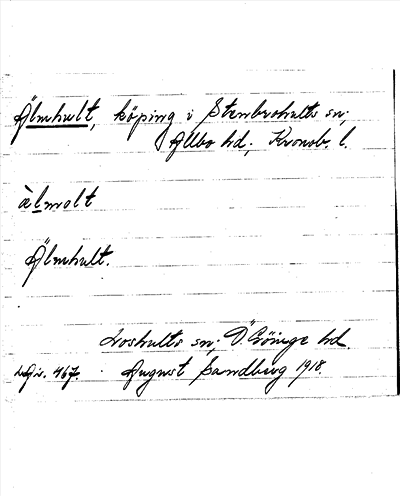 Älmhult, köping i Stenbrohults sn;
Allbo hd; Kronob. l.
àlmalt
Älmhult.
Loshults sn; Ö. Göinge hd.
467. August Sandberg 1918.